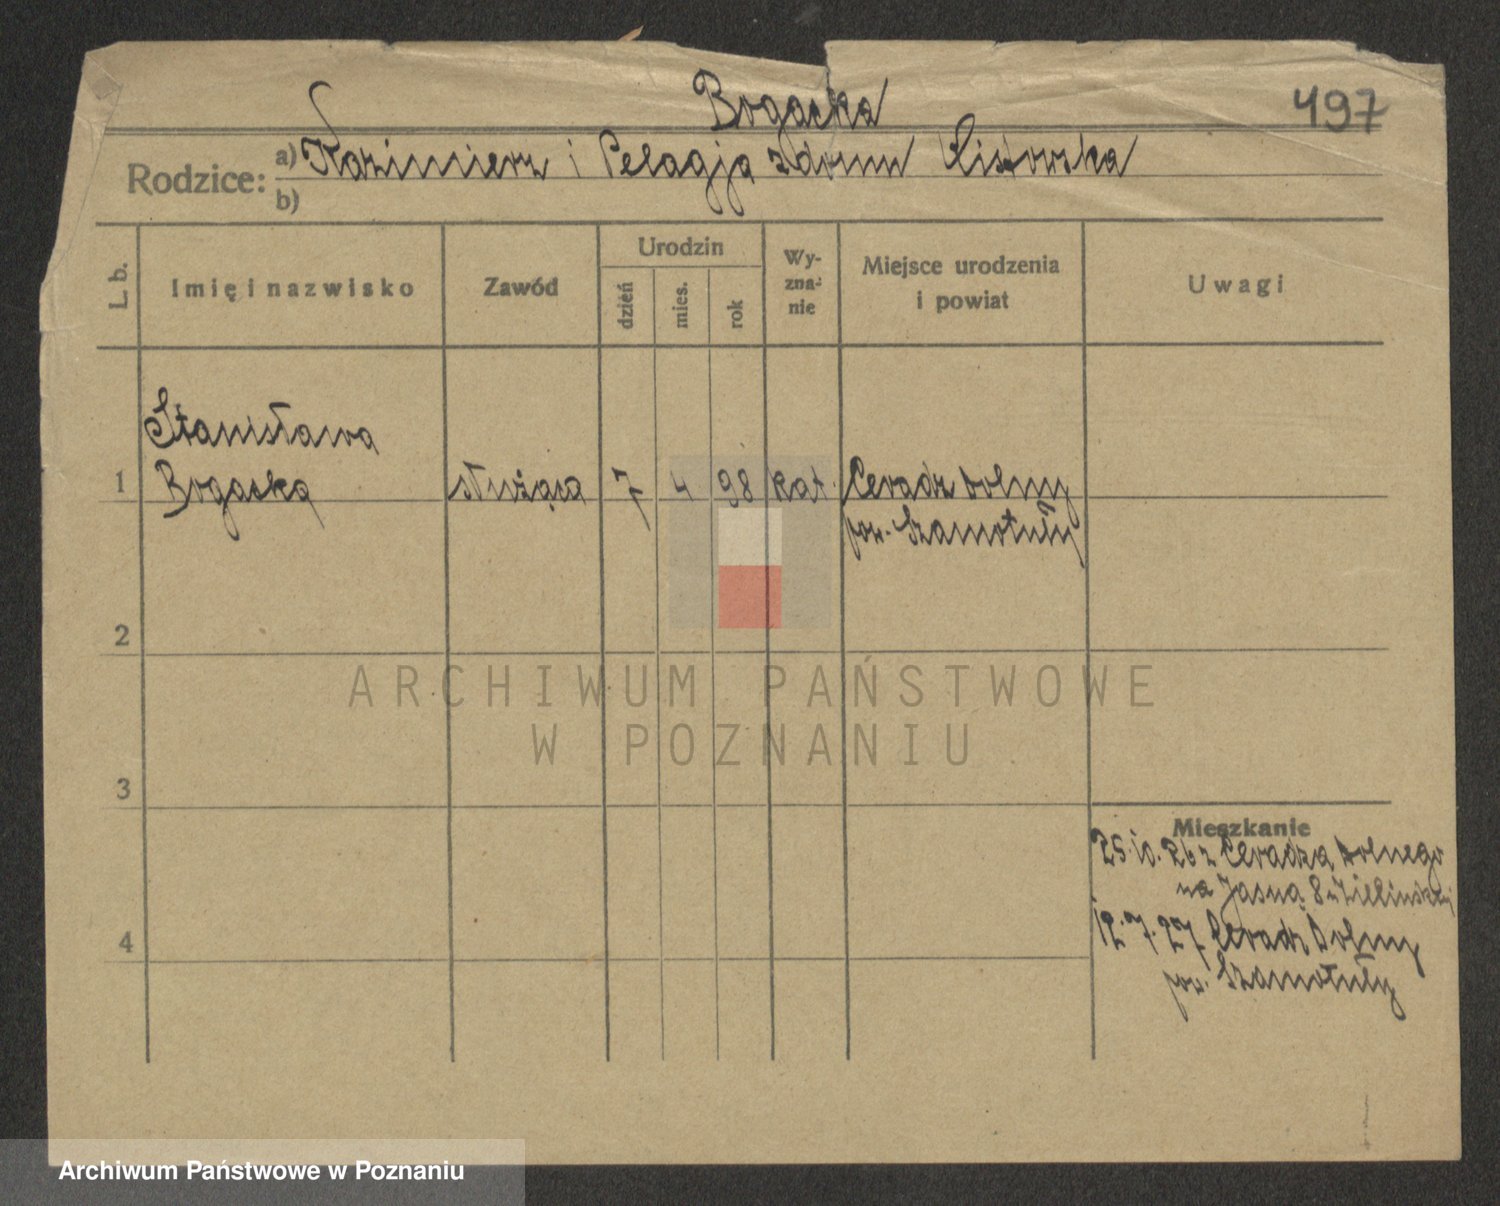 Bogacka
497
Rodzice: a) Kazimierz i Pelagja z domu Lisowska
b)
L. b.
Imię i nazwisko
Zawód
Urodzin
dzień
mies.
rok
Wy-
zna-
nie
Miejsce urodzenia
i powiat
Uwagi
Stanisława
1 Bogacka służąca 7 4 98 kat. Ceradz dolny
pow. Szamotuły
2
3
4
Mieszkanie
25.10.26 z Ceradza Dolnego
na Jasną 8 u Zielińskiej
12.7.27 Ceradz Dolny
pow. Szamotuły
ARCHIWUM PAŃSTWOWE
W POZNANIU
Archiwum Państwowe w Poznaniu